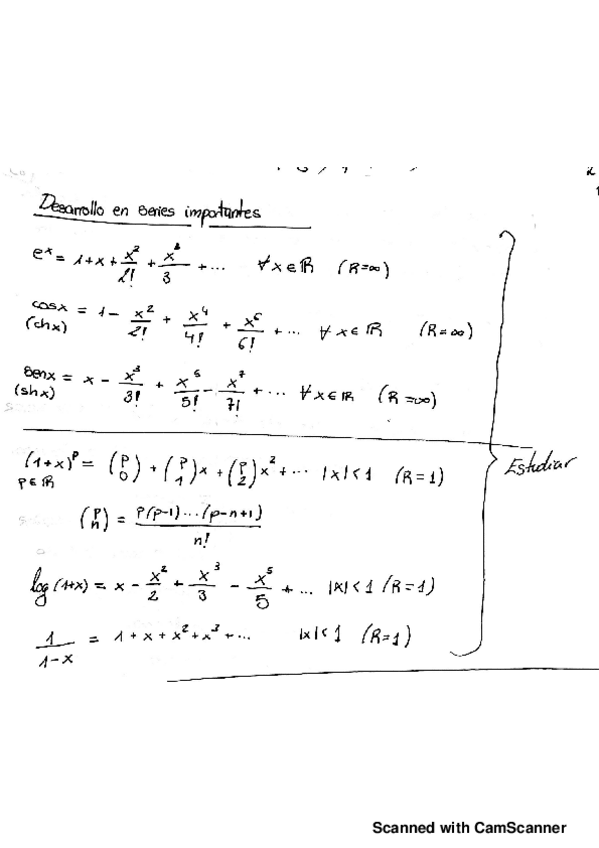 Desarrollo en series importantes
e^x = 1+x+ x²/2! + x³/3 + ... ∀x∈ℝ (R=∞)
cosx = 1 - x²/2! + x⁴/4! + x⁶/6! + ... ∀x∈ℝ (R=∞)
(chx)
senx = x - x³/3! + x⁵/5! - x⁷/7! + ... ∀x∈ℝ (R=∞)
(shx)
(1+x)^p = (p 0) + (p 1)x + (p 2)x² + ... |x|<1 (R=1)
p∈ℝ
Estudiar
(p n) = p(p-1)...(p-n+1)/n!
log(1+x) = x - x²/2 + x³/3 - x⁵/5 + ... |x|<1 (R=1)
1/(1-x) = 1+x+x²+x³+... |x|<1 (R=1)
Scanned with CamScanner